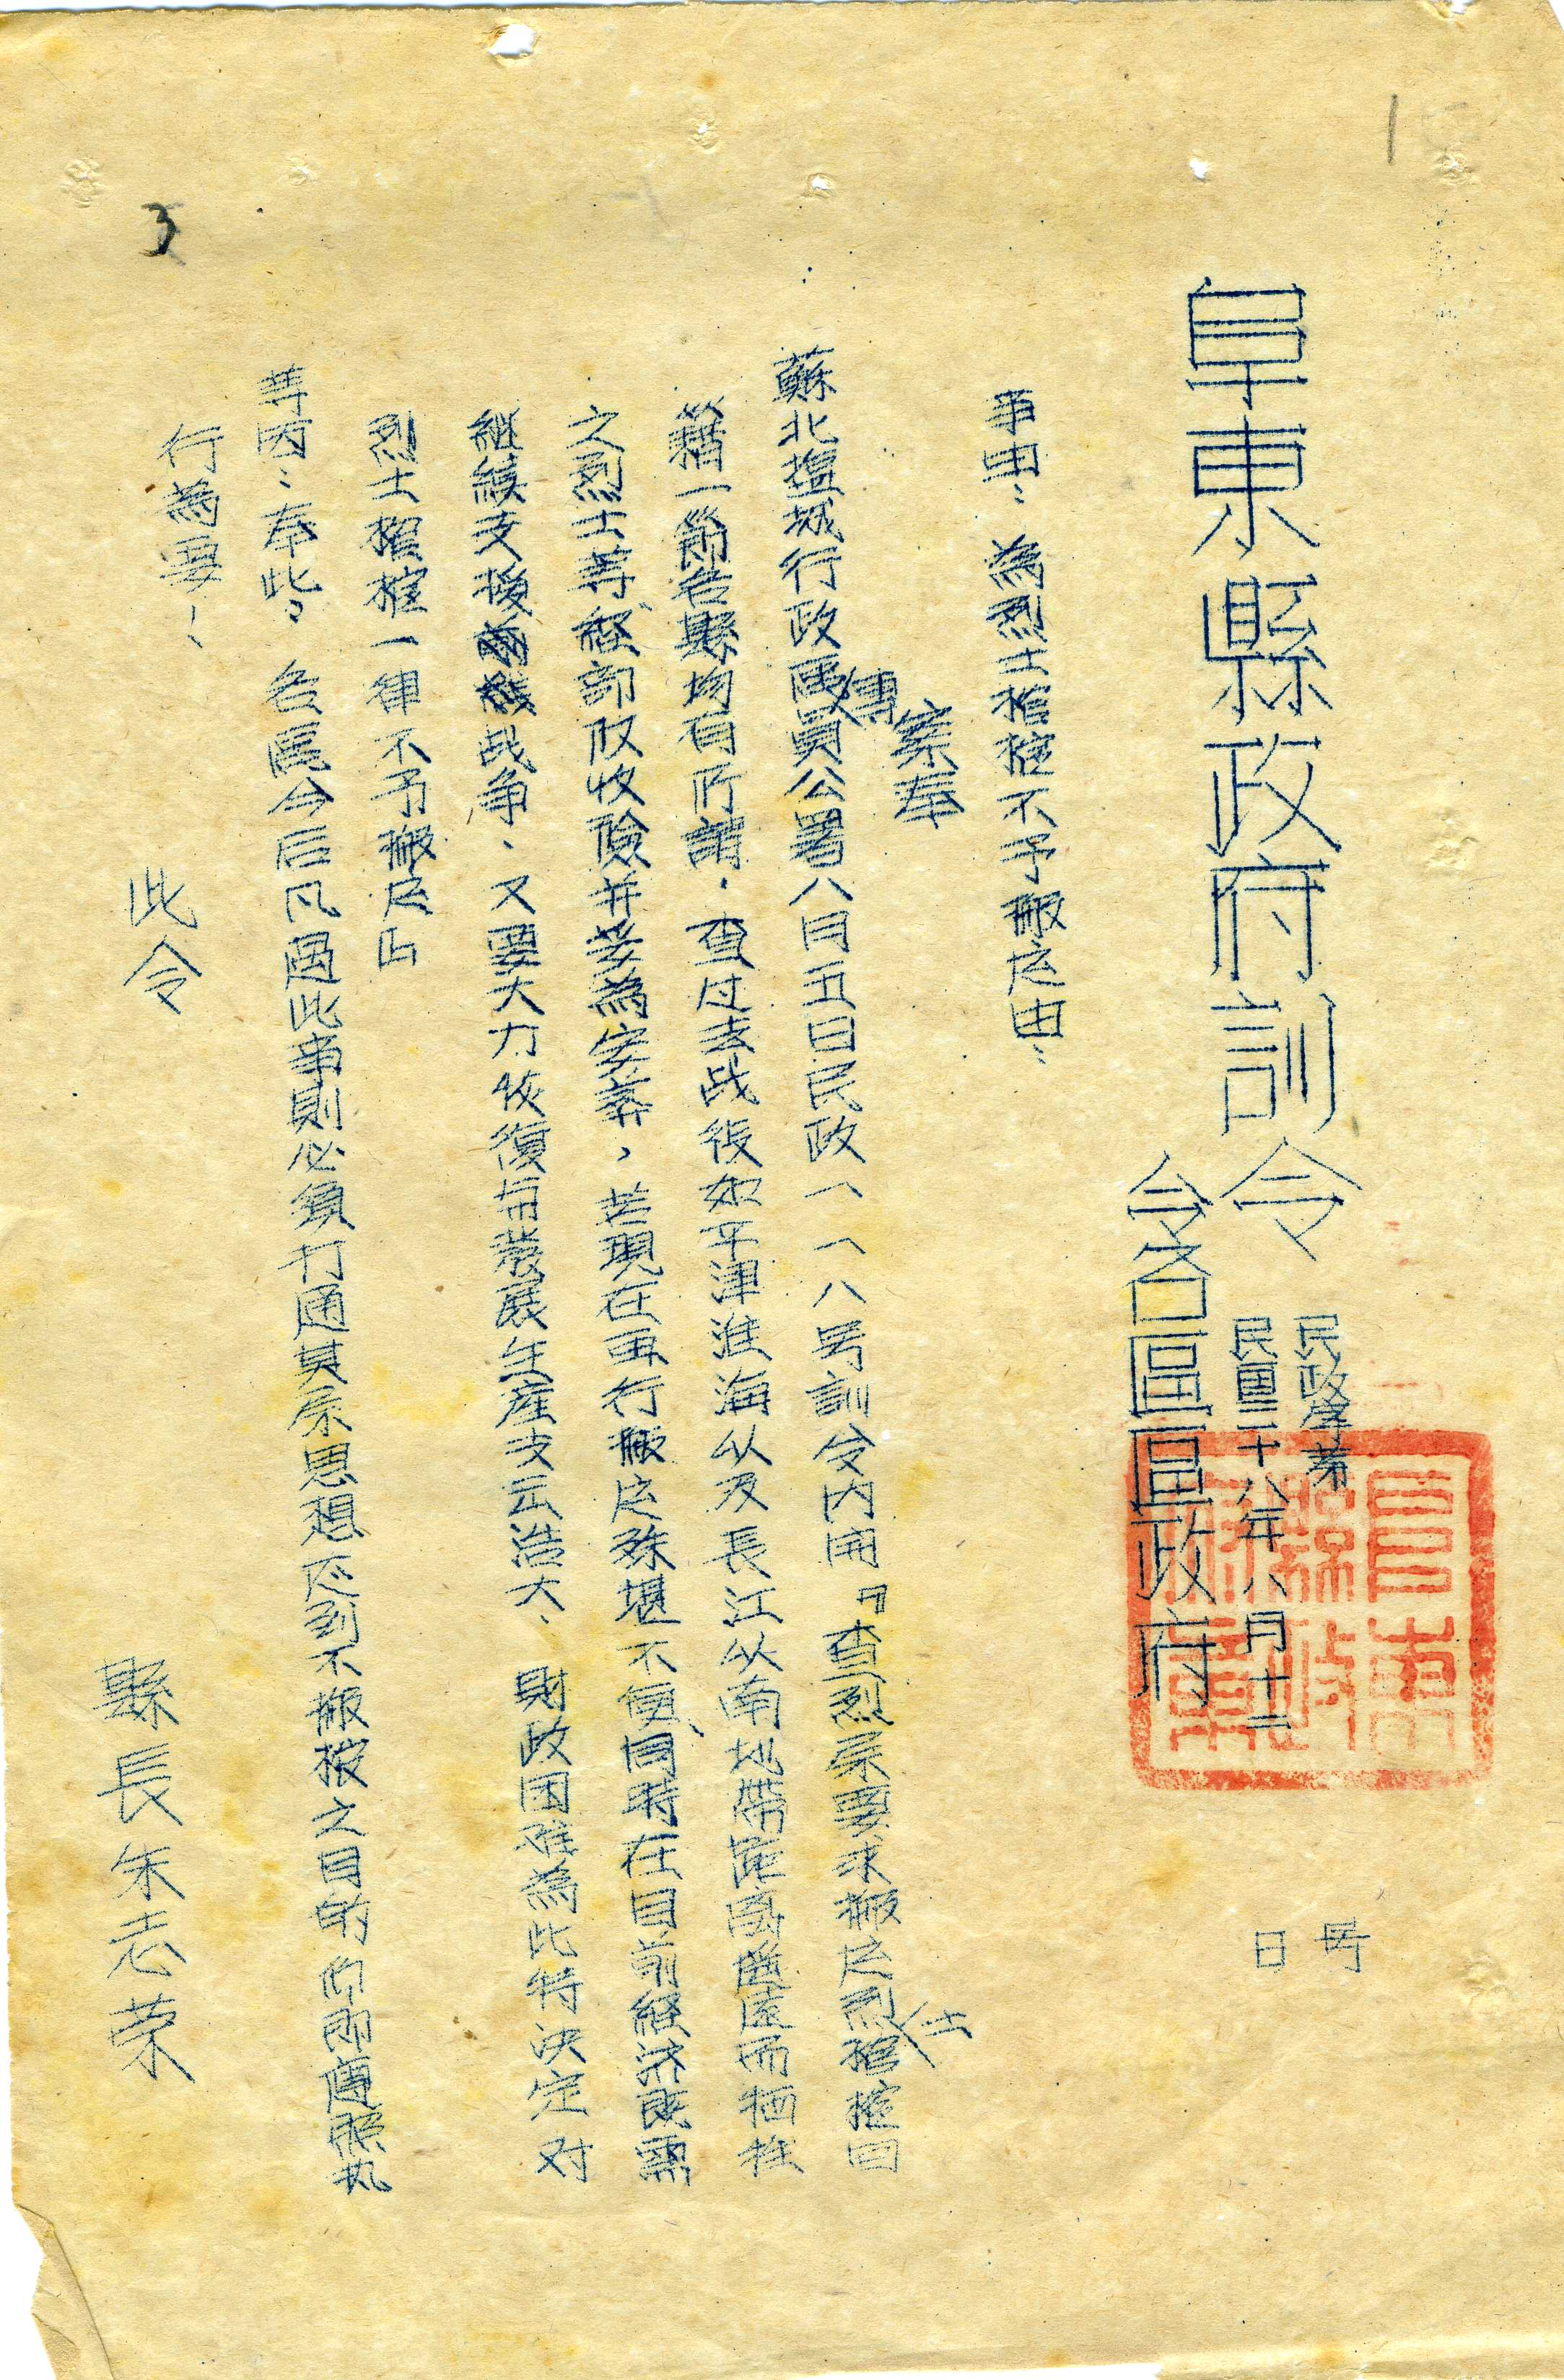 1
阜東縣政府訓令
民政字第 号
民國三十八年八月十二日
令各區區政府
事由：為烈士棺柩不予搬运由：
案奉
蘇北塩城行政區專員公署八月五日民政一一八号訓令内開『查烈属要求搬运烈士棺柩回
籍一節各縣均有所請．查过去战役如平津淮海以及長江以南地帶距离遥远而牺牲
之烈士等經部队收殮并妥為安葬，若現在再行搬运殊堪不便、同時在目前經济既需
継續支援前线战争、又要大力恢復和發展生產支云浩大、財政困难為此特决定对
烈士棺柩一律不予搬运』
等因：奉此。各區今后凡遇此事則必須打通其家属思想达到不搬柩之目的仰即遵照执
行為要！
此令
縣長朱志荣
3